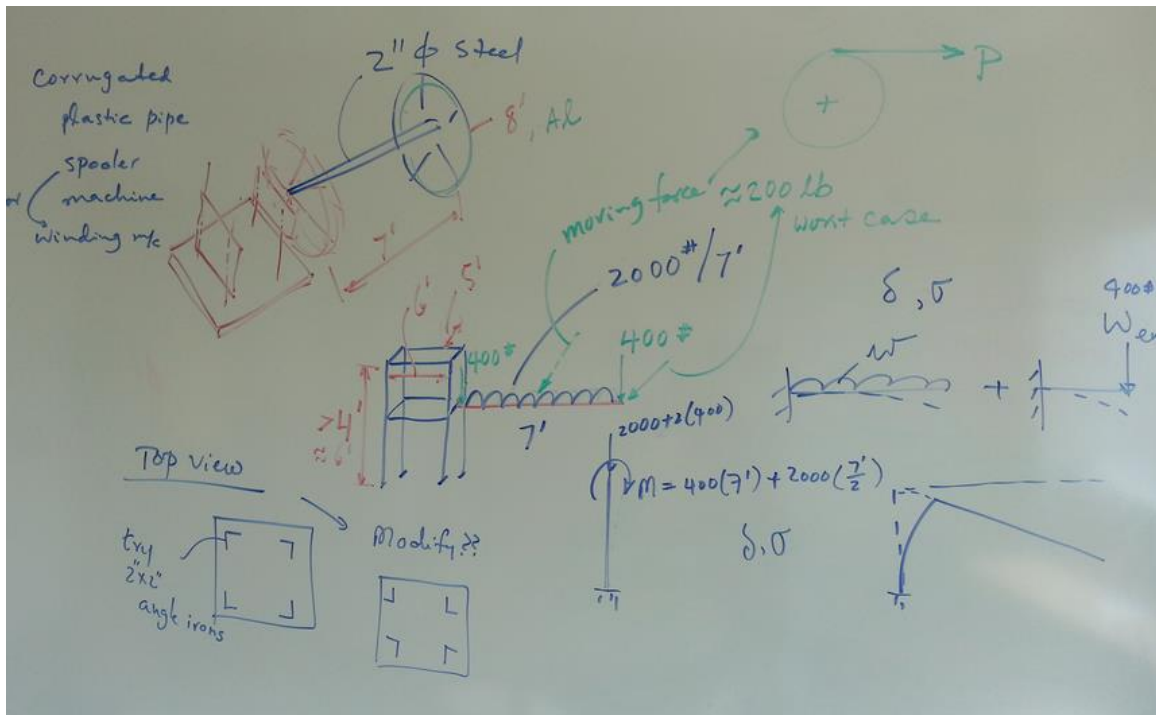 Corrugated
plastic pipe
or spooler
machine
winding m/c
2" ϕ Steel
8', Al
7'
P
moving force ≈200 lb
worst case
2000#/7'
6'
5'
400#
400#
>4'
≈6'
7'
δ, σ
w
+
400#
2000+2(400)
M = 400(7') + 2000(7'/2)
δ, σ
Top view
try
2"x2"
angle irons
Modify??